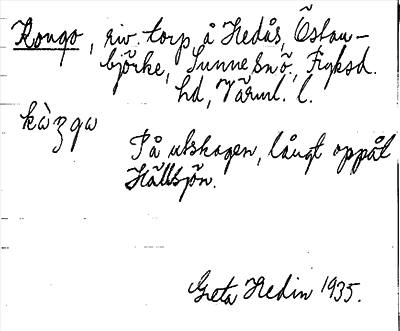 Kongo, riv. torp å Hedås, Östan-
björke, Sunne sn, Fryksd.
hd, Värml. l.
kàŋgω
På utskogen, långt oppåt
Hällsjön.
Greta Hedin 1935.